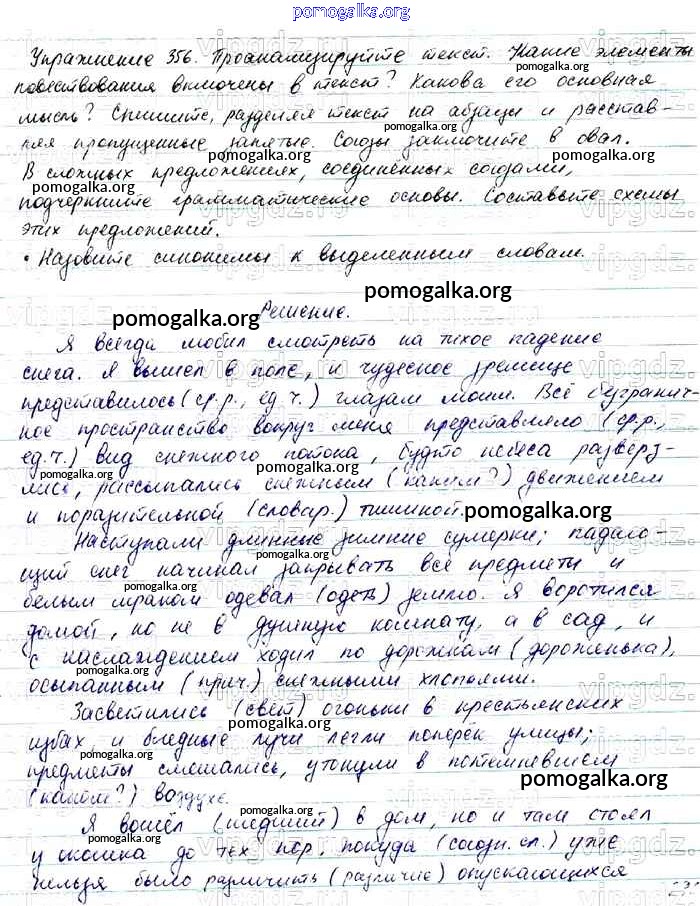 pomogalka.org
Упражнение 356. Проанализируйте текст. Какие элементы
повествования включены в текст? Какова его основная
мысль? Спишите, разделяя текст на абзацы и расстав-
ляя пропущенные запятые. Союзы заключите в овал.
В сложных предложениях, соединённых союзами,
подчеркните грамматические основы. Составьте схемы
этих предложений.
• Назовите синонимы к выделенным словам.
pomogalka.org
Решение.
Я всегда любил смотреть на тихое падение
снега. Я вышел в поле, и чудесное зрелище
представилось (ср.р., ед.ч.) глазам моим. Всё безгранич-
ное пространство вокруг меня представляло (ср.р.,
ед.ч.) вид снежного потока, будто небеса разверз-
лись, рассыпались снежным (каким?) движением
и поразительной (словар.) тишиной.
Наступали длинные зимние сумерки; падаю-
щий снег начинал закрывать все предметы и
белым мраком одевал (одеть) землю. Я воротился
домой, но не в душную комнату, а в сад, и
с наслаждением ходил по дорожкам (дороженька),
осыпанным (прич.) снежными хлопьями.
Засветились (свет) огоньки в крестьянских
избах, и бледные лучи легли поперек улицы;
предметы смешались, утонули в потемневшем
(каком?) воздухе.
Я вошёл (шедший) в дом, но и там стоял
у окошка до тех пор, покуда (союзн. сл.) уже
нельзя было различить (различие) опускающихся